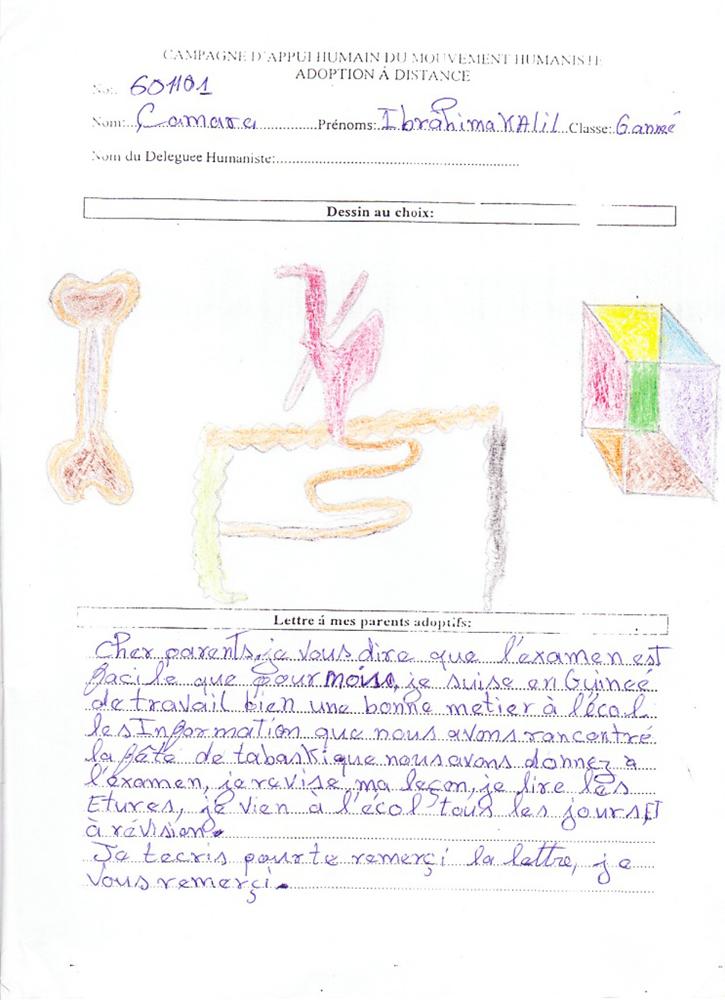 CAMPAGNE D'APPUI HUMAIN DU MOUVEMENT HUMANISTE
ADOPTION À DISTANCE
No:. 601101
Nom:. Camara Prénoms: Ibrahima KAlil Classe:. 6 année
Nom du Deleguee Humaniste:
Dessin au choix:
Lettre á mes parents adoptifs:
Cher parents, je vous dire que l'examen est
facile que pour mois, je suise en Guineé
de travail bien une bonne metier à l'écol
les Information que nous avons rancontré
la fête de tabaski que nous avons donnez a
l'examen, je revise ma leçon, je lire les
Etures, je vien à l'écol tous les jours, ET
à révision.
Je tecris pour te remerçi la lettre, je
vous remerçi.